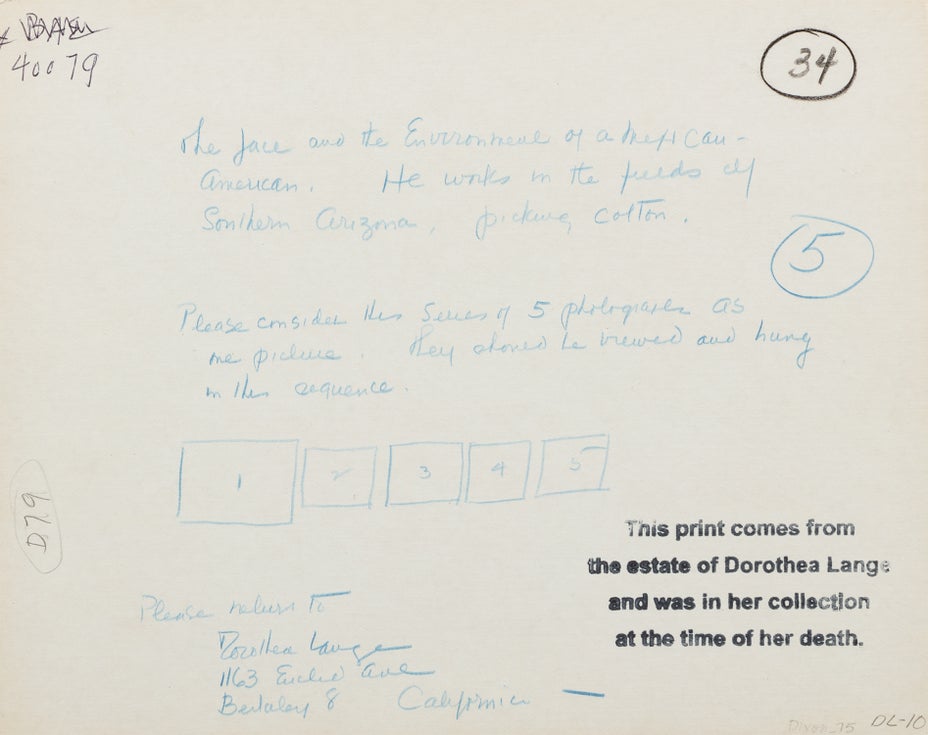 40079
34
The face and the Environment of a Mexican-
American. He works in the fields of
Southern Arizona, picking cotton.
5
Please consider this Series of 5 photographs as
one picture. They should be viewed and hung
in this sequence.
1 2 3 4 5
D79
This print comes from
the estate of Dorothea Lange
and was in her collection
at the time of her death.
Please return to
Dorothea Lange
1163 Euclid Ave
Berkeley 8 California
Dixon 75 DL-10